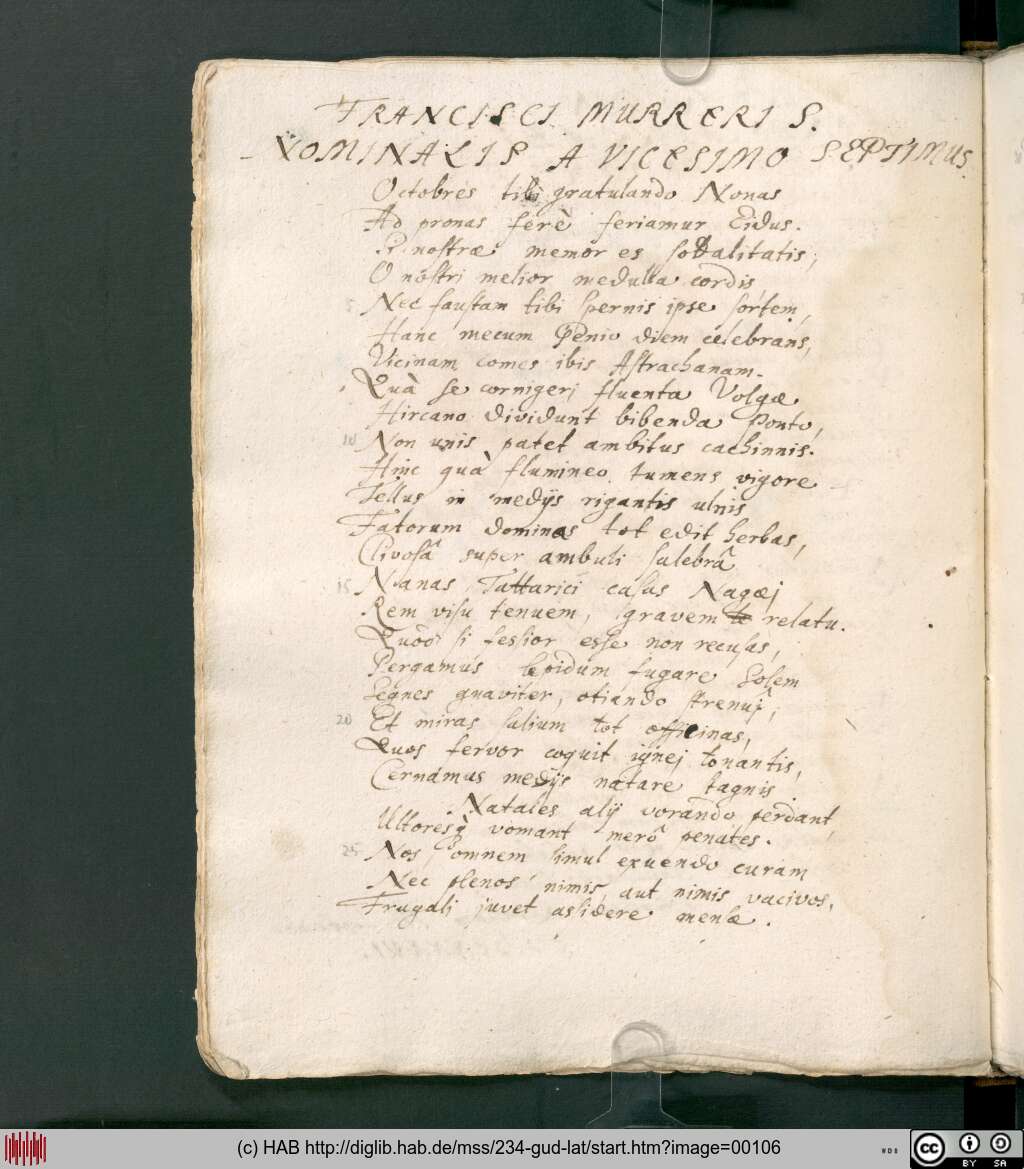 FRANCISCI MURRERI S.
NOMINALIS A VICESIMO SEPTIMUS
Octobres tibi gratulando Nonas
Ad pronas ferè feriamur Eidus.
nostræ memor es sodalitatis;
O nostri melior medulla cordis
5 Nec faustam tibi spernis ipse sortem,
Hanc mecum Genio diem celebrans,
Vicinam comes ibis Astrachanam.
Quà se cornigeri fluenta Volgæ
Hircano dividunt bibenda Ponto,
10 Non unis patet ambitus cachinnis.
Hinc quà flumineo tumens vigore
Tellus in medijs rigantis ulnis
Fatorum dominas tot edit herbas,
Clivosâ super ambuli salebrâ
15 Nanas Tattarici casas Nagæj
Rem visu tenuem, gravem relatu.
Quòd si fessior esse non recusas,
Pergamus lepidum fugare Solem
Segnes gnaviter, otiando strenuj,
20 Et miras salium tot officinas,
Quos fervor coquit ignej tonantis,
Cernamus medijs natare stagnis.
Natales alij vorando perdant,
Ultoresq vomant merô penates.
25 Nos, omnem simul exuendo curam
Nec plenos nimis, aut nimis vacivos,
Frugali juvet assidere mensæ.
(c) HAB http://diglib.hab.de/mss/234-gud-lat/start.htm?image=00106
cc BY SA